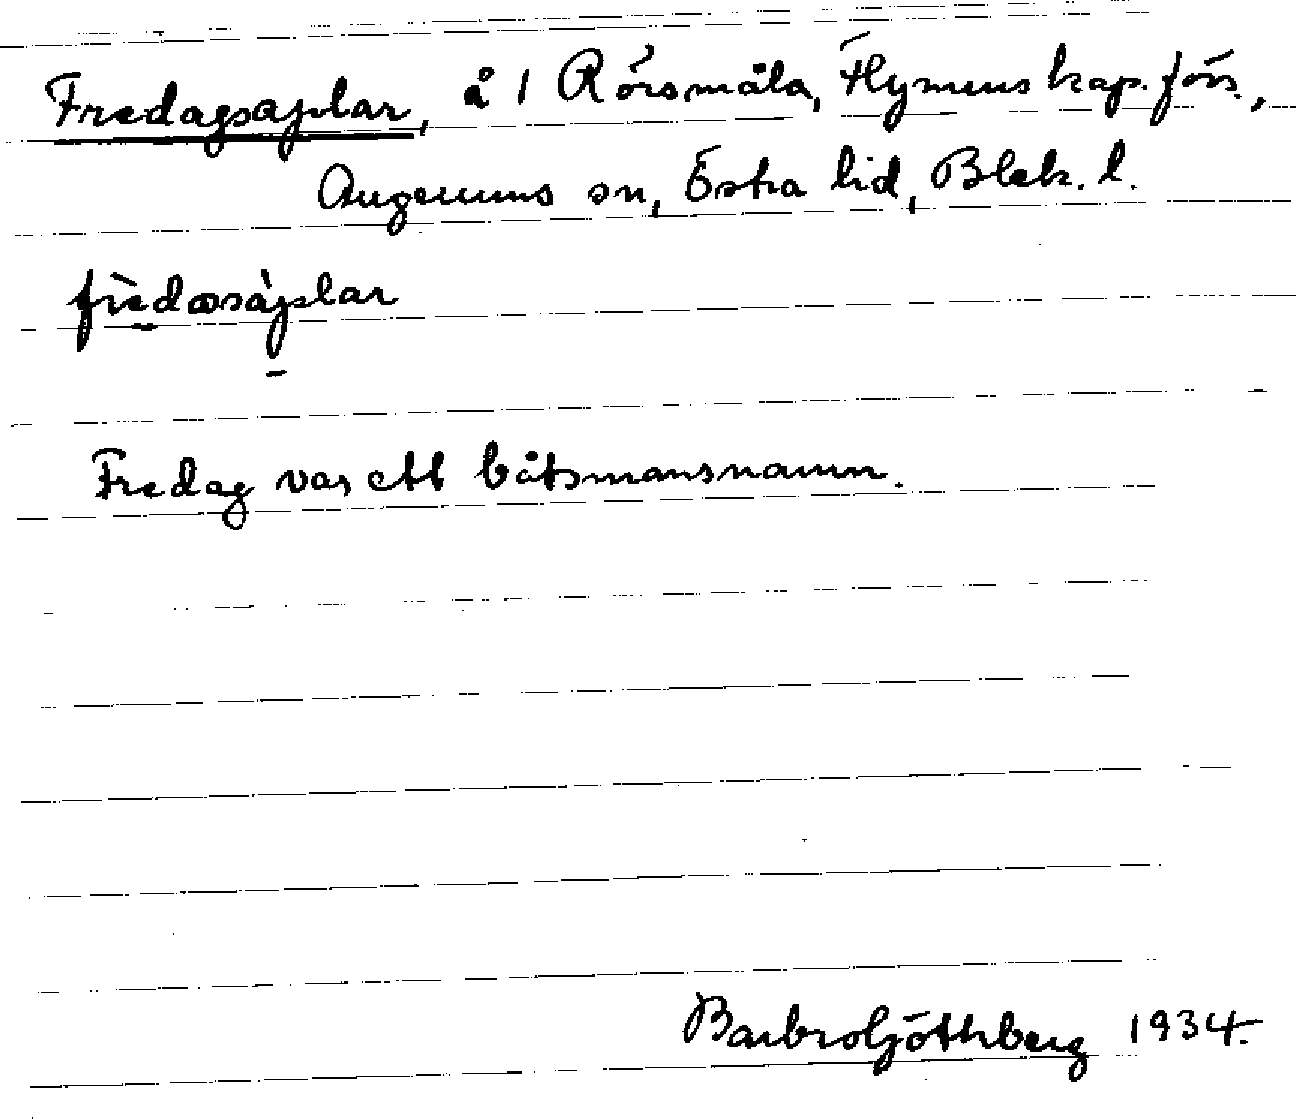 Fredagsaplar, å 1 Rörsmåla, Flymens kap. förs.,
Augerums sn, Östra hd, Blek. l.
frèdasáplar
Fredag var ett båtsmansnamn.
Barbro Göthberg 1934.